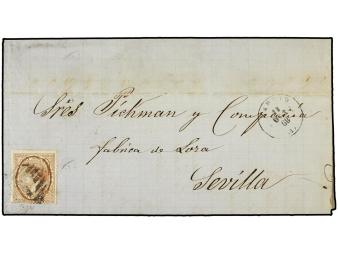 Sres Pichman y Compañia
fabrica de Loza
Sevilla